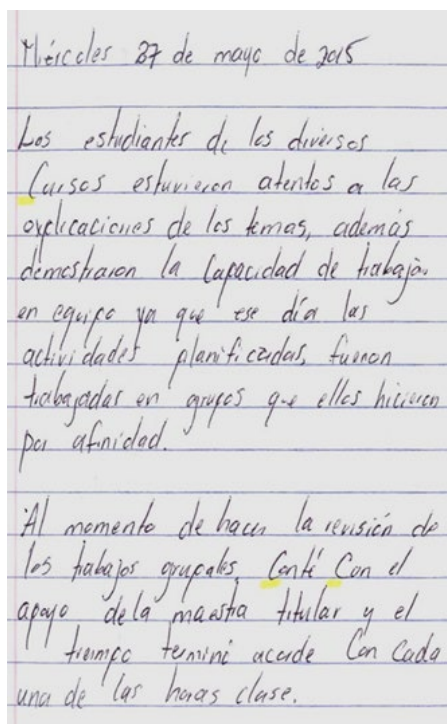 Miércoles 27 de mayo de 2015
Los estudiantes de los diversos
Cursos estuvieron atentos a las
explicaciones de los temas, además
demostraron la Capacidad de trabajar
en equipo ya que ese día las
actividades planificadas, fueron
trabajadas en grupos que ellos hicieron
por afinidad.
Al momento de hacer la revisión de
los trabajos grupales, Conté Con el
apoyo dela maestra titular y el
tiempo terminé acorde Con Cada
una de las horas clase.